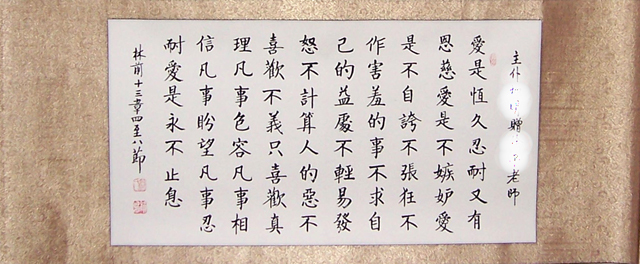 主仆 贈 老師
愛是恆久忍耐又有
恩慈愛是不嫉妒愛
是不自誇不張狂不
作害羞的事不求自
己的益處不輕易發
怒不計算人的惡不
喜歡不義只喜歡真
理凡事包容凡事相
信凡事盼望凡事忍
耐愛是永不止息
林前十三章四至八節